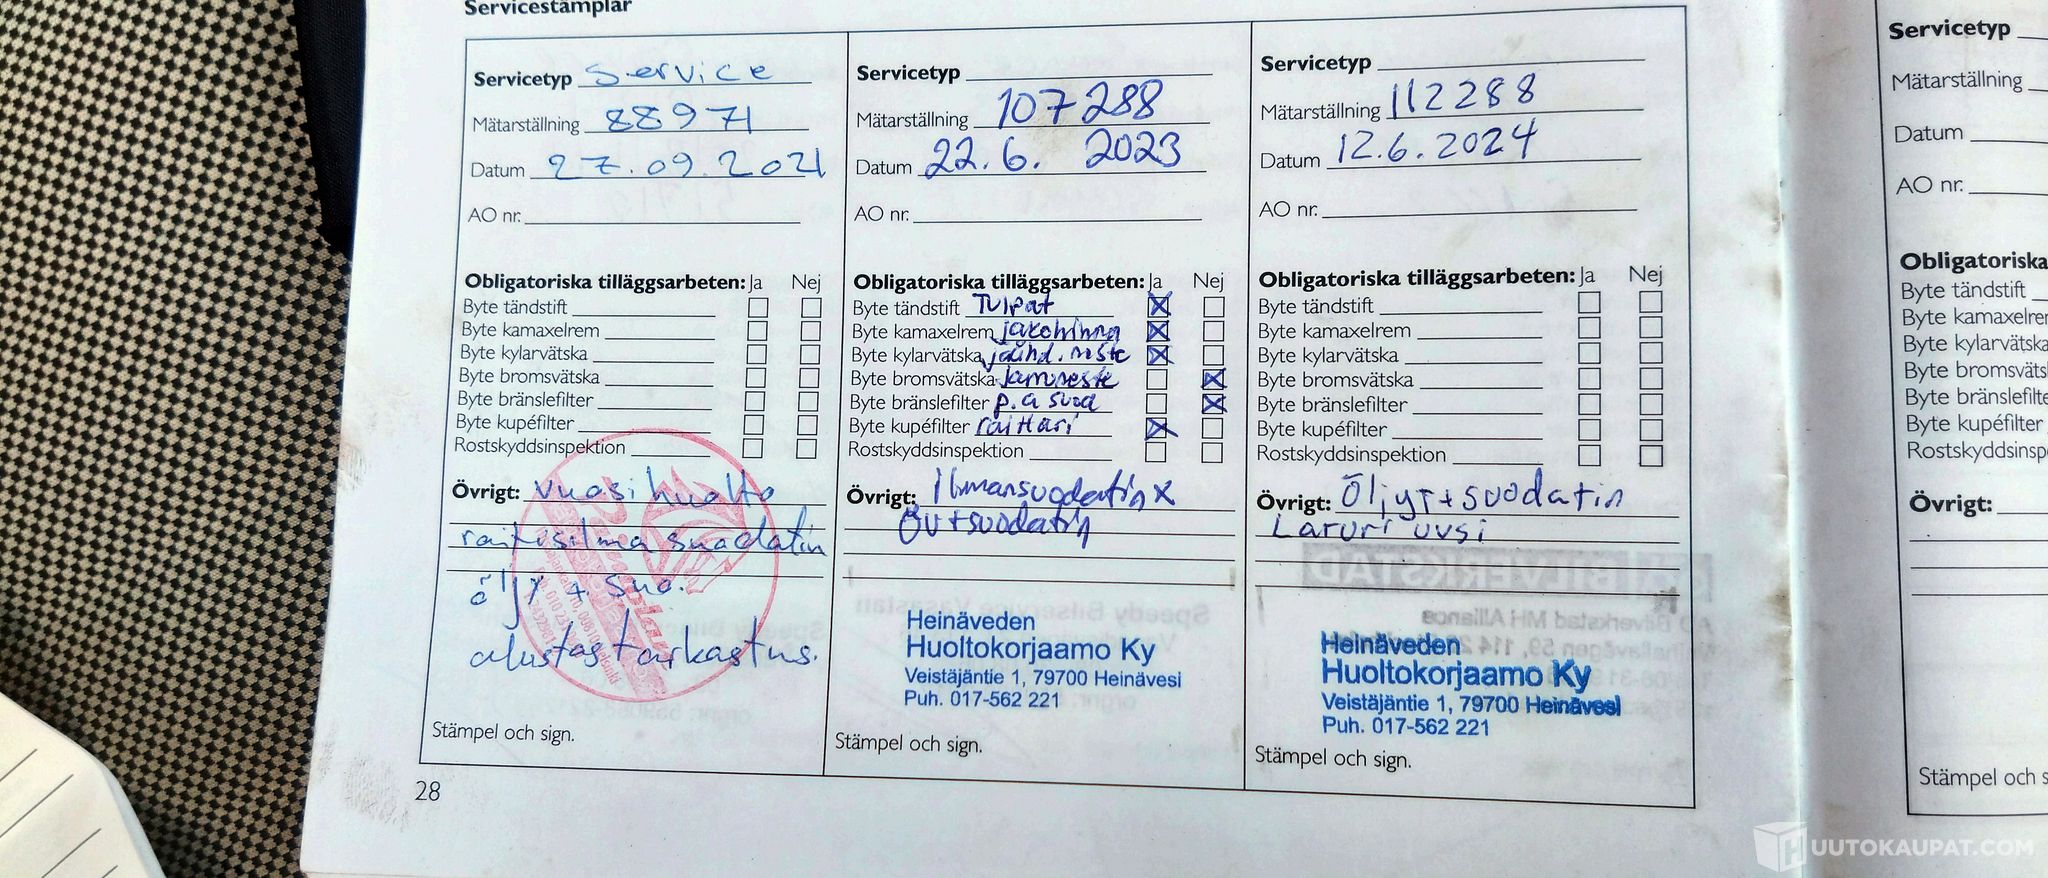 Servicestämplar
Servicetyp service
Mätarställning 88971
Datum 27.09.2021
AO nr.
Obligatoriska tilläggsarbeten: Ja Nej
Byte tändstift
Byte kamaxelrem
Byte kylarvätska
Byte bromsvätska
Byte bränslefilter
Byte kupéfilter
Rostskyddsinspektion
Övrigt: vuosihuolto
raitisilma suodatin
öljy + suo.
alustastarkastus.
Stämpel och sign.
28
Servicetyp
Mätarställning 107288
Datum 22.6. 2023
AO nr.
Obligatoriska tilläggsarbeten: Ja Nej
Byte tändstift Tulpat
Byte kamaxelrem jakohihna
Byte kylarvätska jäähd. neste
Byte bromsvätska Jarruneste
Byte bränslefilter p.a suod
Byte kupéfilter
Rostskyddsinspektion
Övrigt: Ilmansuodatin x
+suodatin
Heinäveden
Huoltokorjaamo Ky
Veistäjäntie 1, 79700 Heinävesi
Puh. 017-562 221
Stämpel och sign.
Servicetyp
Mätarställning 112288
Datum 12.6.2024
AO nr.
Obligatoriska tilläggsarbeten: Ja Nej
Byte tändstift
Byte kamaxelrem
Byte kylarvätska
Byte bromsvätska
Byte bränslefilter
Byte kupéfilter
Rostskyddsinspektion
Övrigt: Öljyt+suodatin
Laturi uusi
Heinäveden
Huoltokorjaamo Ky
Veistäjäntie 1, 79700 Heinävesi
Puh. 017-562 221
Stämpel och sign.
Servicetyp
Mätarställning
Datum
AO nr.
Obligatoriska
Byte tändstift
Byte kamaxelrem
Byte kylarvätska
Byte bromsväts
Byte bränslefilte
Byte kupéfilter
Rostskyddsinsp
Övrigt:
Stämpel och s
HUUTOKAUPAT.COM